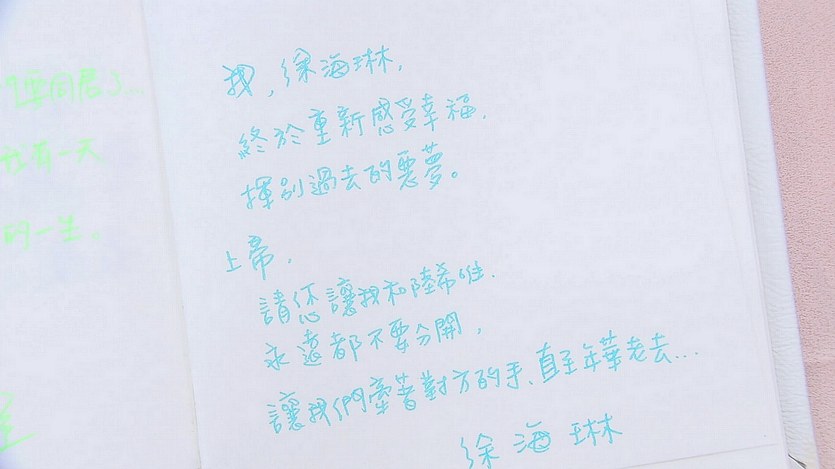 要同居了...
有一天
的一生。
我，徐海琳，
終於重新感受幸福，
揮別過去的惡夢。
上帝，
請您讓我和陸希唯，
永遠都不要分開，
讓我們牽著對方的手、直至年華老去...
徐海琳